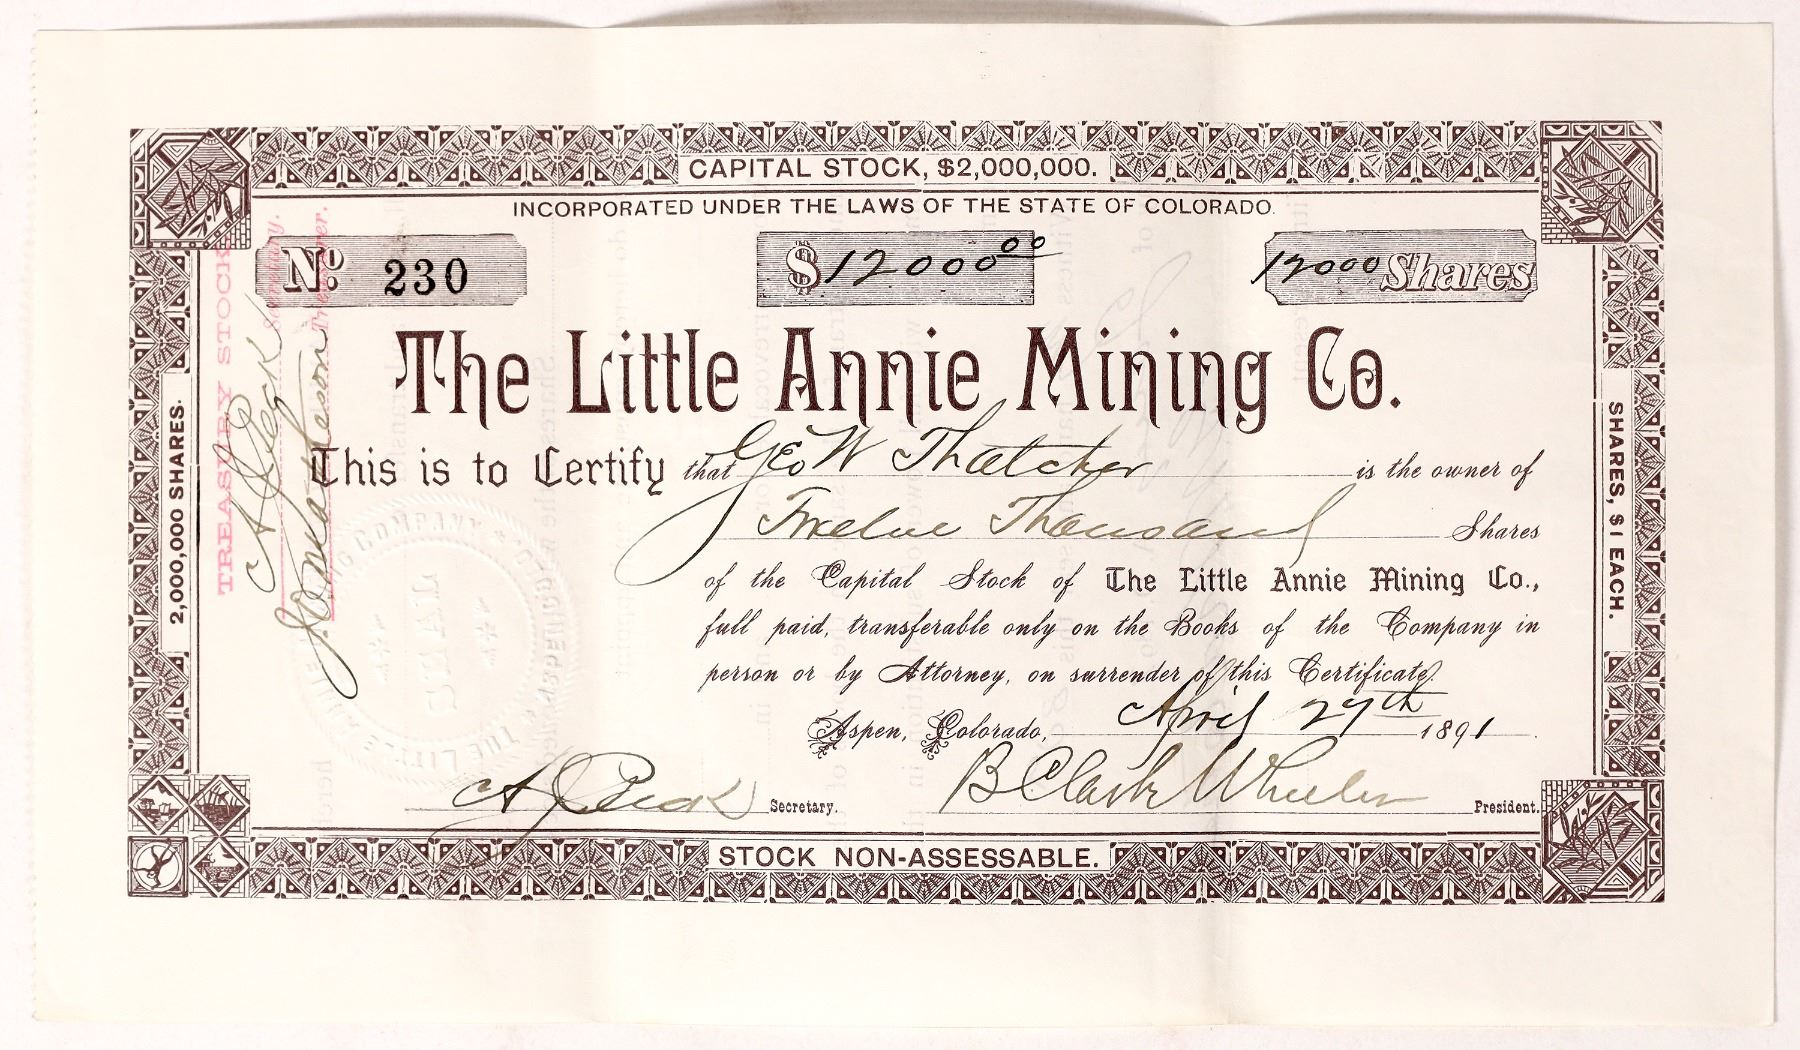 CAPITAL STOCK, $2,000,000.
INCORPORATED UNDER THE LAWS OF THE STATE OF COLORADO.
No. 230
$12000.00
12000 Shares
The Little Annie Mining Co.
This is to Certify that Geo W Thatcher is the owner of
Twelve Thousand Shares
of the Capital Stock of The Little Annie Mining Co.,
full paid, transferable only on the Books of the Company in
person or by Attorney, on surrender of this Certificate.
Aspen, Colorado, April 27th 1891.
Secretary.
B Clark Wheeler President.
STOCK NON-ASSESSABLE.
2,000,000 SHARES.
SHARES, $1 EACH.
TREASURY STOCK
Secretary.
Treasurer.